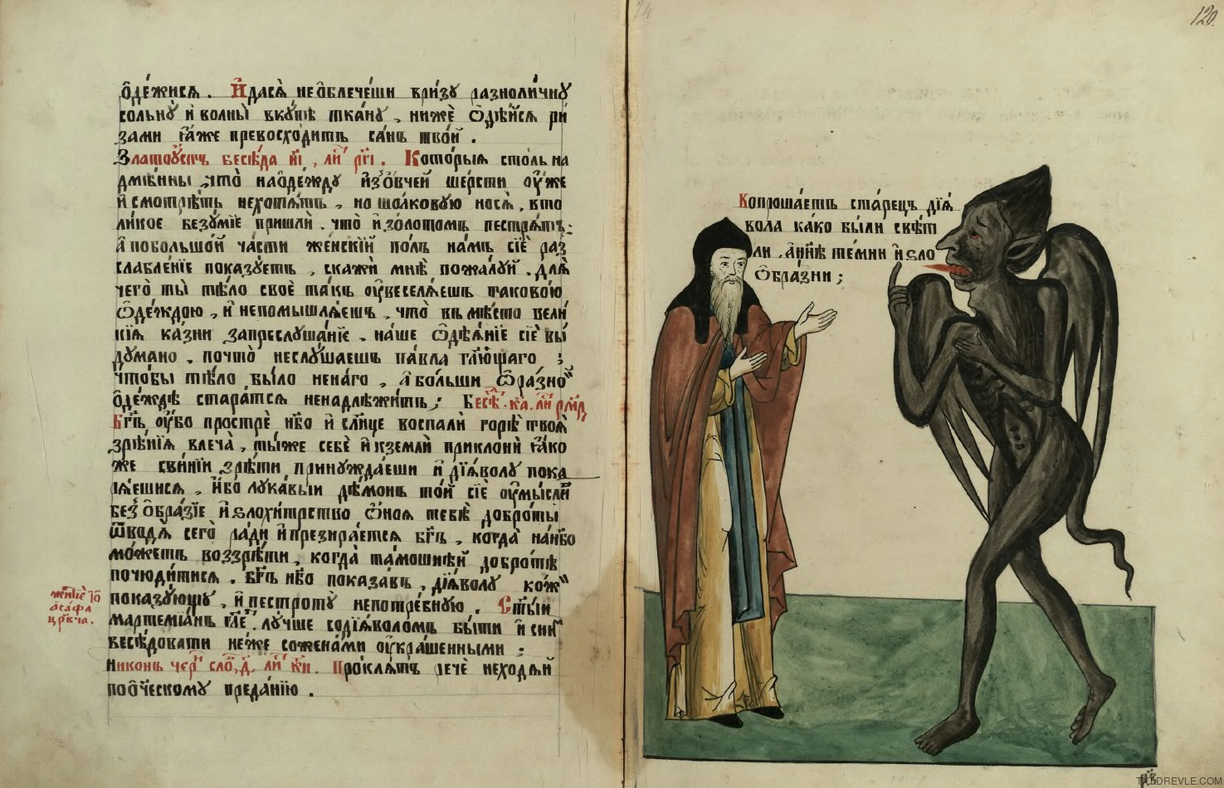 ѻ҆де́жисѧ . И҆ дасѧ̀ не ѻ҆блече́ши в ри́зꙋ разноли́чнꙋ
со льнꙋ̀ и҆ во́лны вкꙋ́пѣ тка́нꙋ , нижѐ ѡ҆дѣ́йсѧ ри
зами ꙗ҆́же превосхо́дитъ са́нъ тво́й .
Златоꙋ́стъ бесѣ́да и҃і , ли́ р҃гі . Кото́рыѧ сто́ль на
дмѣ́нны , что̀ на ѻ҆де́ждꙋ и҆з̾ ѻ҆́вчей ше́рсти ᲂу҆же
и҆ смотрѣ́ть нехотѧ́тъ , но шолко́вꙋю носѧ̀ , в то
ли́кое безꙋ́мїе пришлѝ , что̀ и҆ зо́лотомъ пестрѧ́тъ :
А҆ по большо́й ча́сти же́нскїй по́лъ на́мъ сїѐ раз
слабле́нїе пока́зꙋетъ , скажѝ мнѣ̀ пожа́лꙋй . для̀
чего̀ ты̀ тѣ́ло своѐ та́къ ᲂу҆веселѧ́ешь таково́ю
ѡ҆де́ждою , и҆ непомышлѧ́ешь , что̀ вмѣ́сто вели
кїѧ ка́зни за преслꙋша́нїе , на́ше ѡ҆дѣѧ́нїе сїѐ вы́
дꙋмано , почто̀ неслꙋ́шаешь па́вла гл҃ющаго ;
что́бы тѣ́ло бы́ло нена́го , а҆ бо́льши ѡ҆ ра́зно
ѻ҆де́ждѣ стара́тсѧ ненадлѣжи́тъ ; Бесѣ̑ . к҃а . ли́
Бг҃ъ ᲂу҆́бо прострѐ нб҃о и҆ сл҃нце воспалѝ горѣ̀ твоѧ̑
зрѣ́нїѧ влеча̀ , ты́же себѐ и҆ к землѝ приклонѝ ꙗ҆́ко
же свинїѝ зрѣ́ти принꙋжда́еши и҆ дїѧ́волꙋ пока
ѧ́ешисѧ , И҆́бо лꙋка́выи де́монъ то́й сїѐ ᲂу҆мы́сли
без̾ѻбра́зїе и҆ ѕлохи́трство ѿ ѻ҆́ноѧ тебѐ добро́ты
ѿводѧ̀ сего̀ ра́ди и҆ презира́етсѧ бг҃ъ , когда̀ на нб҃о
мо́жетъ воззрѣ́ти , когда̀ та́мошнѣй добро́тѣ
почюди́тисѧ . Бг҃ъ нб҃о показа́въ , дїѧ́волꙋ ко́ж
пока́зꙋющꙋ , и҆ пестротꙋ̀ непотре́бнꙋю . Ст҃ый
мартемїа́нъ гл҃е . лꙋ́чше со дїѧ́воломъ бы́ти и҆ сни́м
бесѣ́довати не́же со жена́ми ᲂу҆кра́шенными ;
Никонъ чер̾ сло́ , д҃ , ли́ к҃и . Про́клѧтъ речѐ неходѧ́й
по ѻ҆те́ческомꙋ преда́нїю .
житїѐ їѡ
аса́фа
цр҃вча .
120.
Вопроша́етъ ста́рецъ дїѧ́
вола ка́ко бы́ли свѣт
ли , а нн҃ѣ те́мни и҆ ѕло
ѻ҆бра́зни ;
TO-DREVLE.COM